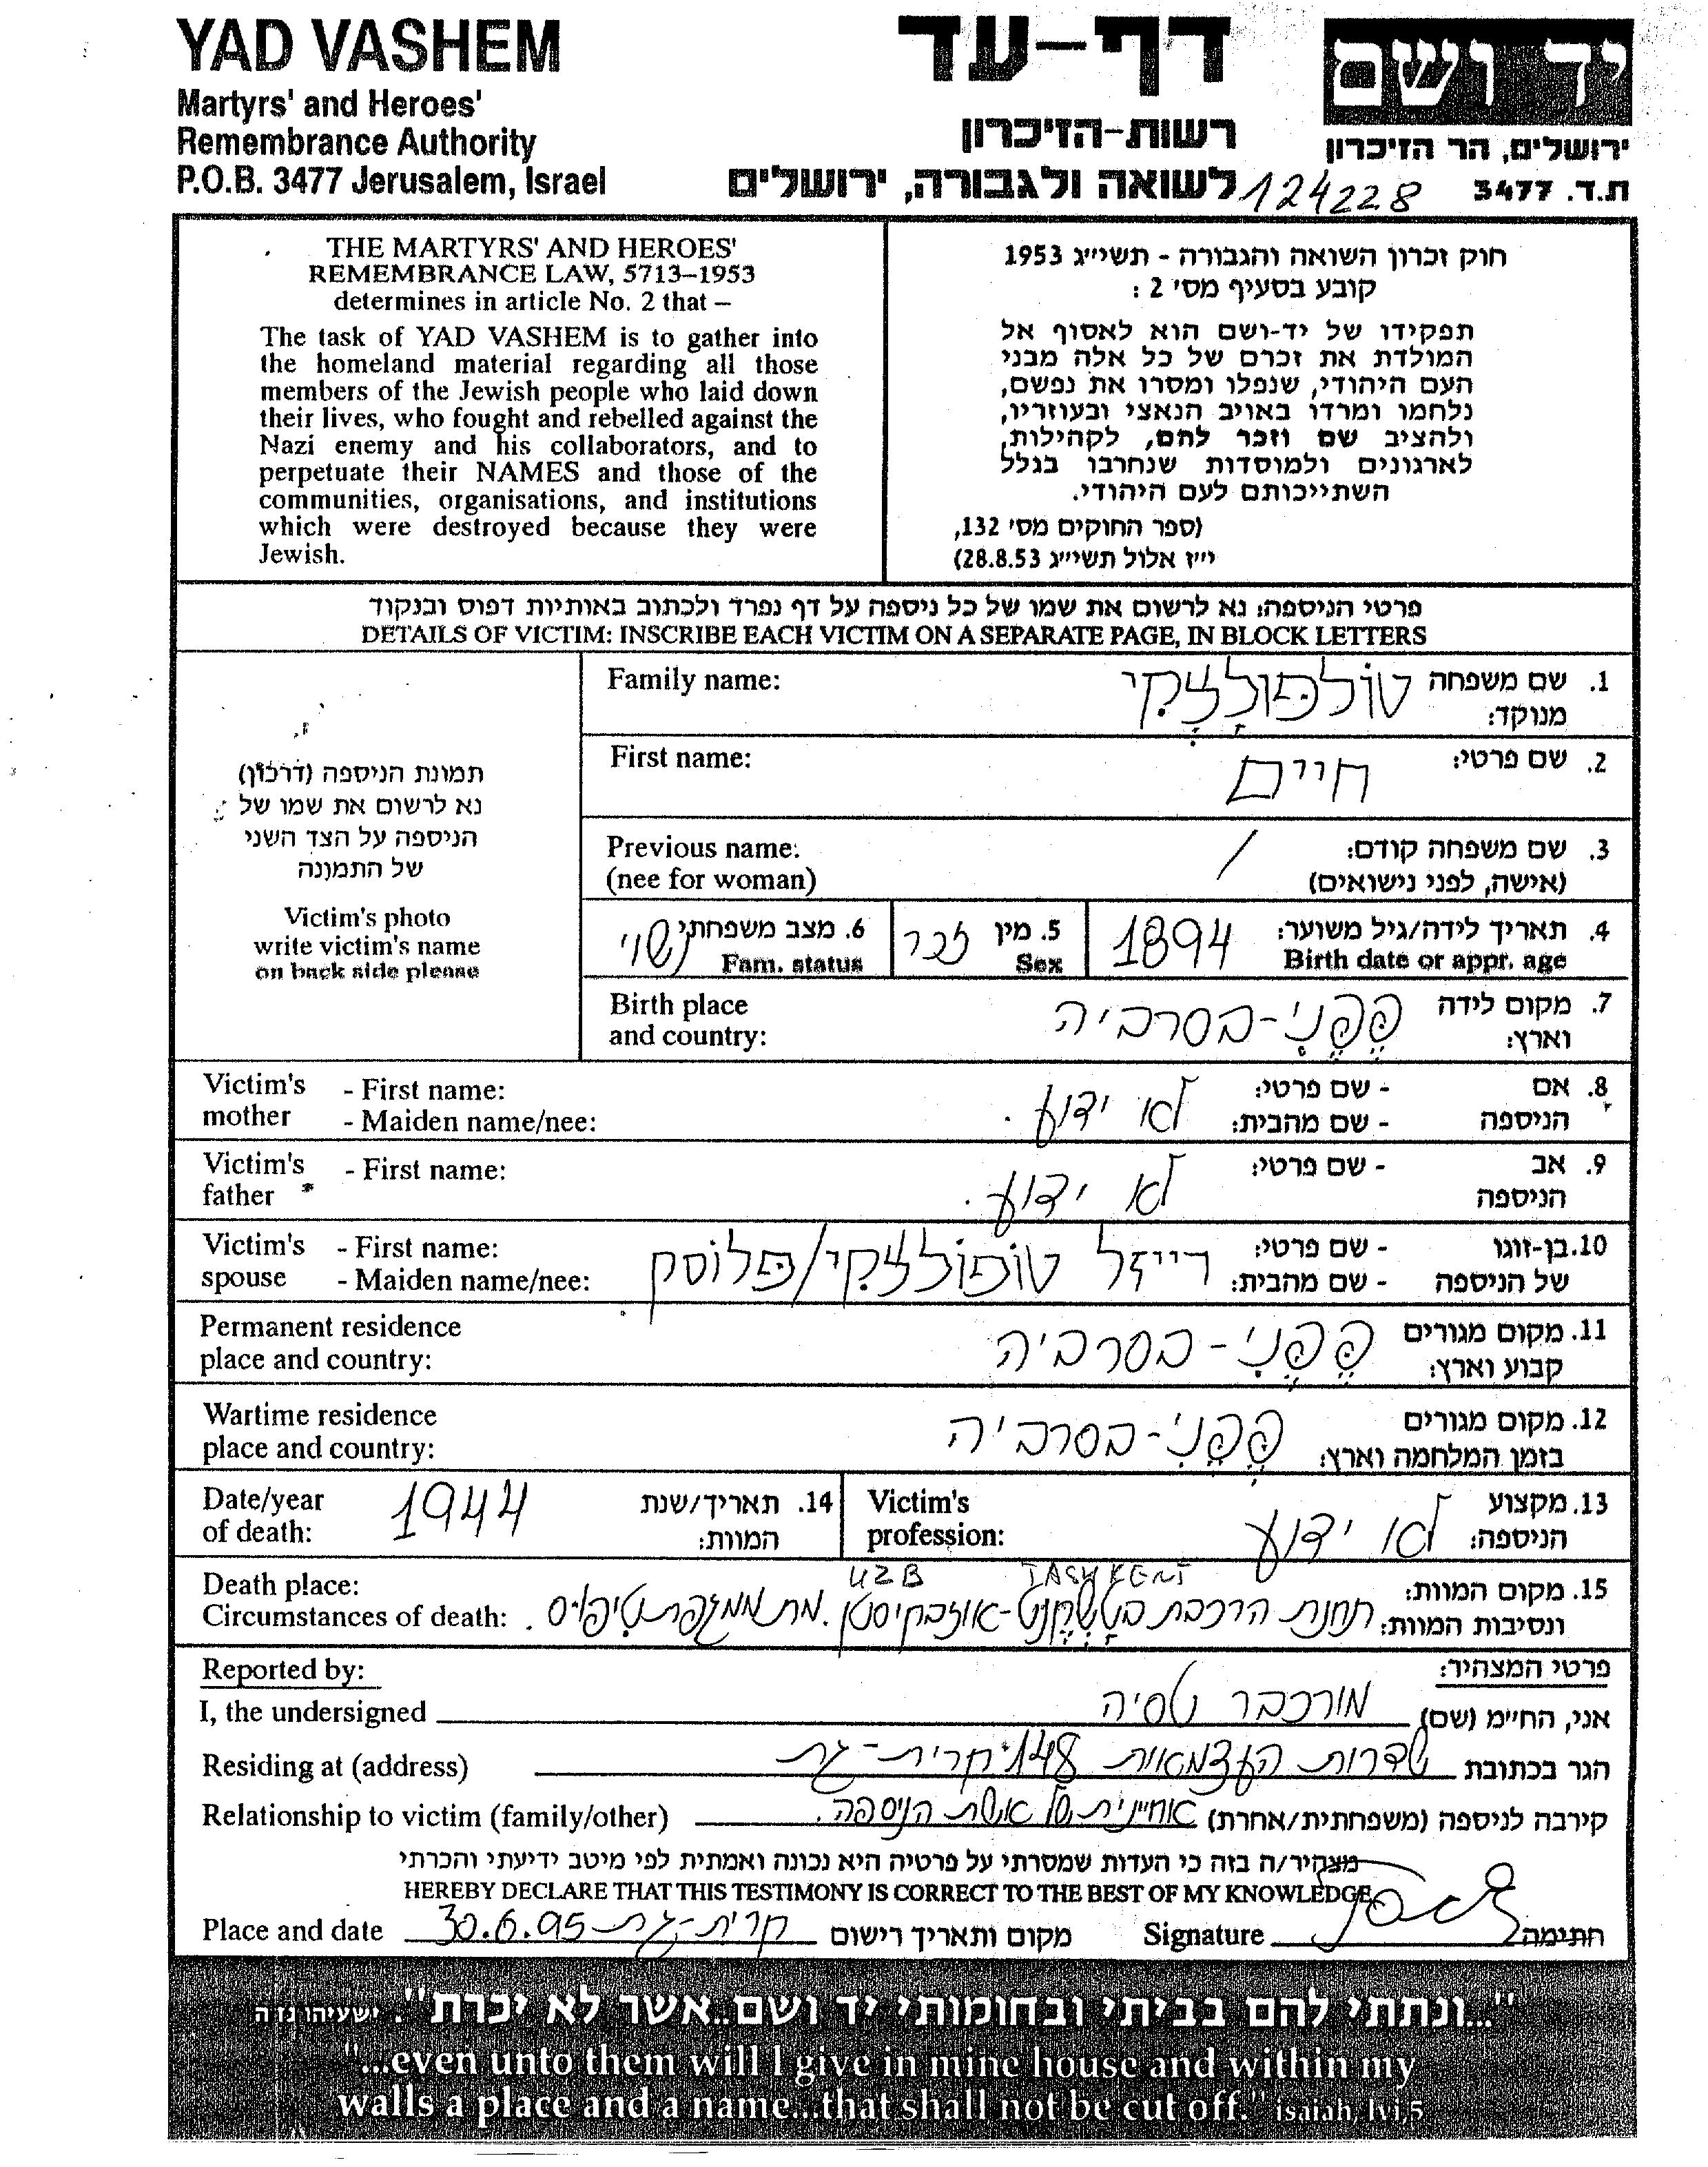 YAD VASHEM
Martyrs' and Heroes'
Remembrance Authority
P.O.B. 3477 Jerusalem, Israel
דף-עד
רשות-הזיכרון
לשואה ולגבורה, ירושלים
124228
יד ושם
ירושלים, הר הזיכרון
ת.ד. 3477
THE MARTYRS' AND HEROES'
REMEMBRANCE LAW, 5713–1953
determines in article No. 2 that –
The task of YAD VASHEM is to gather into
the homeland material regarding all those
members of the Jewish people who laid down
their lives, who fought and rebelled against the
Nazi enemy and his collaborators, and to
perpetuate their NAMES and those of the
communities, organisations, and institutions
which were destroyed because they were
Jewish.
חוק זכרון השואה והגבורה - תשי״ג 1953
קובע בסעיף מס׳ 2 :
תפקידו של יד-ושם הוא לאסוף אל
המולדת את זכרם של כל אלה מבני
העם היהודי, שנפלו ומסרו את נפשם,
נלחמו ומרדו באויב הנאצי ובעוזריו,
ולהציב שם וזכר להם, לקהילות,
לארגונים ולמוסדות שנחרבו בגלל
השתייכותם לעם היהודי.
(ספר החוקים מס׳ 132,
י״ז אלול תשי״ג 28.8.53)
פרטי הניספה: נא לרשום את שמו של כל ניספה על דף נפרד ולכתוב באותיות דפוס ובנקוד
DETAILS OF VICTIM: INSCRIBE EACH VICTIM ON A SEPARATE PAGE, IN BLOCK LETTERS
תמונת הניספה (דרכון)
נא לרשום את שמו של
הניספה על הצד השני
של התמונה
Victim's photo
write victim's name
on back side please
Family name: טולפולצקי 1. שם משפחה
מנוקד:
First name: חיים 2. שם פרטי:
Previous name: / 3. שם משפחה קודם:
(nee for woman) (אישה, לפני נישואים)
4. תאריך לידה/גיל משוער: 1894 5. מין זכר 6. מצב משפחתי נשוי
Birth date or appr. age Sex Fam. status
Birth place פפני-בסרביה 7. מקום לידה
and country: וארץ:
Victim's - First name: לא ידוע. - שם פרטי: 8. אם
mother - Maiden name/nee: - שם מהבית: הניספה
Victim's - First name: לא ידוע. - שם פרטי: 9. אב
father הניספה
Victim's - First name: רייזל טופולצקי/פלוסק - שם פרטי: 10. בן-זוגו
spouse - Maiden name/nee: - שם מהבית: של הניספה
Permanent residence פפני-בסרביה 11. מקום מגורים
place and country: קבוע וארץ:
Wartime residence פפני-בסרביה 12. מקום מגורים
place and country: בזמן המלחמה וארץ:
Date/year 1944 14. תאריך/שנת
of death: המוות:
Victim's לא ידוע 13. מקצוע
profession: הניספה:
UZB TASHKENT
Death place: 15. מקום המוות:
Circumstances of death: תחנת הרכבת בטשקנט-אוזבקיסטן. מת ממגפת טיפוס. ונסיבות המוות:
Reported by: פרטי המצהיר:
I, the undersigned מורכבר טסיה אני, החי״מ (שם)
Residing at (address) שדרות העצמאות 148 קרית-גת הגר בכתובת
Relationship to victim (family/other) אחיינית של אשת הניספה. קירבה לניספה (משפחתית/אחרת)
מצהיר/ה בזה כי העדות שמסרתי על פרטיה היא נכונה ואמתית לפי מיטב ידיעתי והכרתי
HEREBY DECLARE THAT THIS TESTIMONY IS CORRECT TO THE BEST OF MY KNOWLEDGE
Place and date קרית-גת 30.6.95 מקום ותאריך רישום Signature חתימה
"...ונתתי להם בביתי ובחומותי יד ושם..אשר לא יכרת". ישעיהו נו ה
"...even unto them will I give in mine house and within my
walls a place and a name...that shall not be cut off." isaiah lvi,5